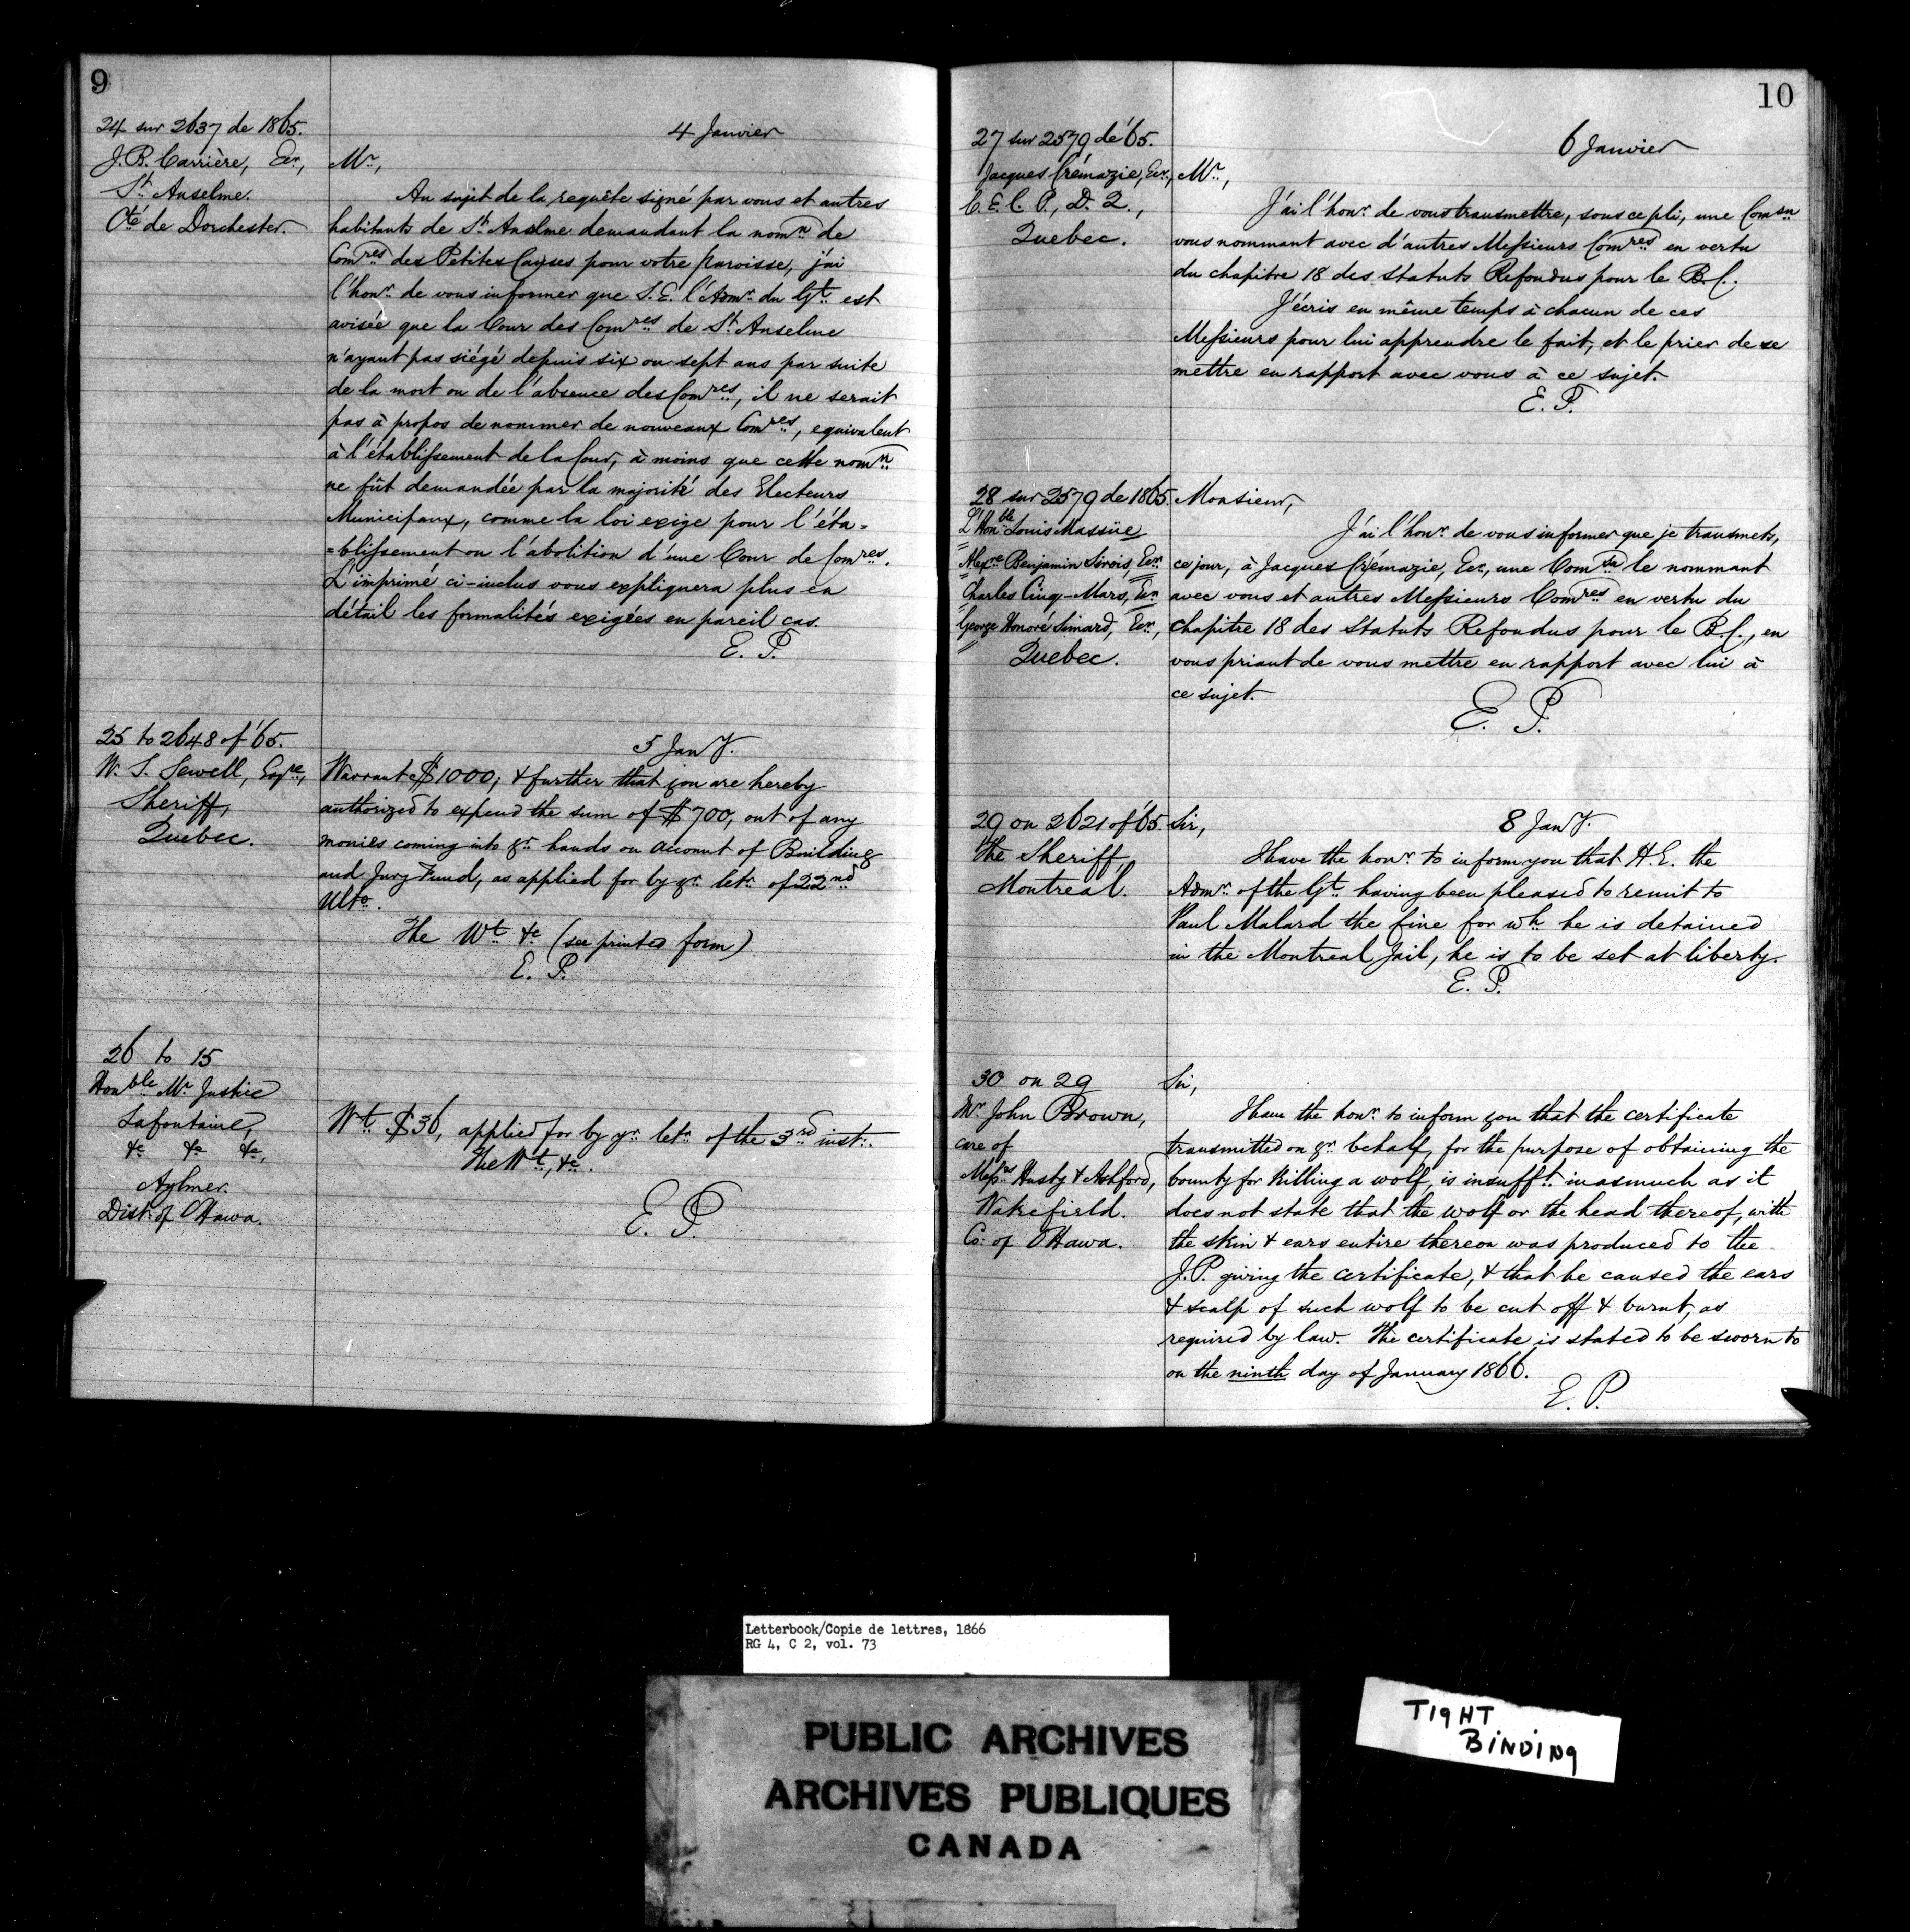 9
24 sur 2637 de 1865.
J. B. Carrière, Ecr.,
St. Anselme.
Cté de Dorchester.
4 Janvier
Mr.,
Au sujet de la requête signé par vous et autres
habitants de St. Anselme demandant la nomn. de
Comres. des Petites Causes pour votre paroisse, j'ai
l'honr. de vous informer que S. E. l'Admr. du Gt. est
avisée que la Cour des Comres. de St. Anselme
n'ayant pas siégé depuis six ou sept ans par suite
de la mort ou de l'absence des Comres., il ne serait
pas à propos de nommer de nouveaux Comres., equivalent
à l'établissement de la Cour, à moins que cette nomn.
ne fût demandée par la majorité des Electeurs
Municipaux, comme la loi exige pour l'éta=
=blissement ou l'abolition d'une Cour de Comres.
L'imprimé ci-inclus vous expliquera plus en
détail les formalités exigées en pareil cas.
E. P.
25 to 2648 of '65.
W. S. Sewell, Esqre.,
Sheriff,
Quebec.
5 Jany.
Warrant $1000; & further that you are hereby
authorized to expend the sum of $700, out of any
monies coming into yr. hands on account of Building
and Jury Fund, as applied for by yr. letr. of 22nd
Ulto.
The Wt. &c (see printed form)
E. P.
26 to 15
Honble. Mr. Justice
Lafontaine,
&c &c &c,
Aylmer.
Dist. of Ottawa.
Wt. $36, applied for by yr. letr. of the 3rd inst.
The Wt., &c.
E. P.
10
27 sur 2579 de '65.
Jacques Crémazie, Ecr.,
C. E. C. P., D. Q.,
Quebec.
6 Janvier
Mr.,
J'ai l'honr. de vous transmettre, sous ce pli, une Comsn
vous nommant avec d'autres Messieurs Comres. en vertu
du chapitre 18 des Statuts Refondus pour le B. C.
J'écris en même temps à chacun de ces
Messieurs pour lui apprendre le fait, et le prier de se
mettre en rapport avec vous à ce sujet.
E. P.
28 sur 2579 de 1865.
L'Honble. Louis Massüe
Alexre Benjamin Sirois, Ecr.
Charles Cinq-Mars, Ecr.
George Honoré Simard, Ecr.,
Quebec.
Monsieur,
J'ai l'honr. de vous informer que je transmets,
ce jour, à Jacques Crémazie, Ecr., une Comsn. le nommant
avec vous et autres Messieurs Comres. en vertu du
chapitre 18 des Statuts Refondus pour le B. C., en
vous priant de vous mettre en rapport avec lui à
ce sujet.
E. P.
29 on 2621 of '65.
The Sheriff,
Montreal.
8 Jany.
Sir,
I have the honr. to inform you that H. E. the
Admr. of the Gt. having been pleased to remit to
Paul Malard the fine for wh. he is detained
in the Montreal Jail, he is to be set at liberty.
E. P.
30 on 29
Mr. John Brown,
care of
Messrs Husty & Ashford,
Wakefield.
Co: of Ottawa.
Sir,
I have the honr. to inform you that the certificate
transmitted on yr. behalf, for the purpose of obtaining the
bounty for killing a wolf, is insufft. inasmuch as it
does not state that the wolf or the head thereof, with
the skin & ears entire thereon was produced to the
J. P. giving the certificate, & that he caused the ears
& scalp of such wolf to be cut off & burnt, as
required by law. The certificate is stated to be sworn to
on the ninth day of January 1866.
E. P.
Letterbook/Copie de lettres, 1866
RG 4, C 2, vol. 73
PUBLIC ARCHIVES
ARCHIVES PUBLIQUES
CANADA
TIGHT
BINDING